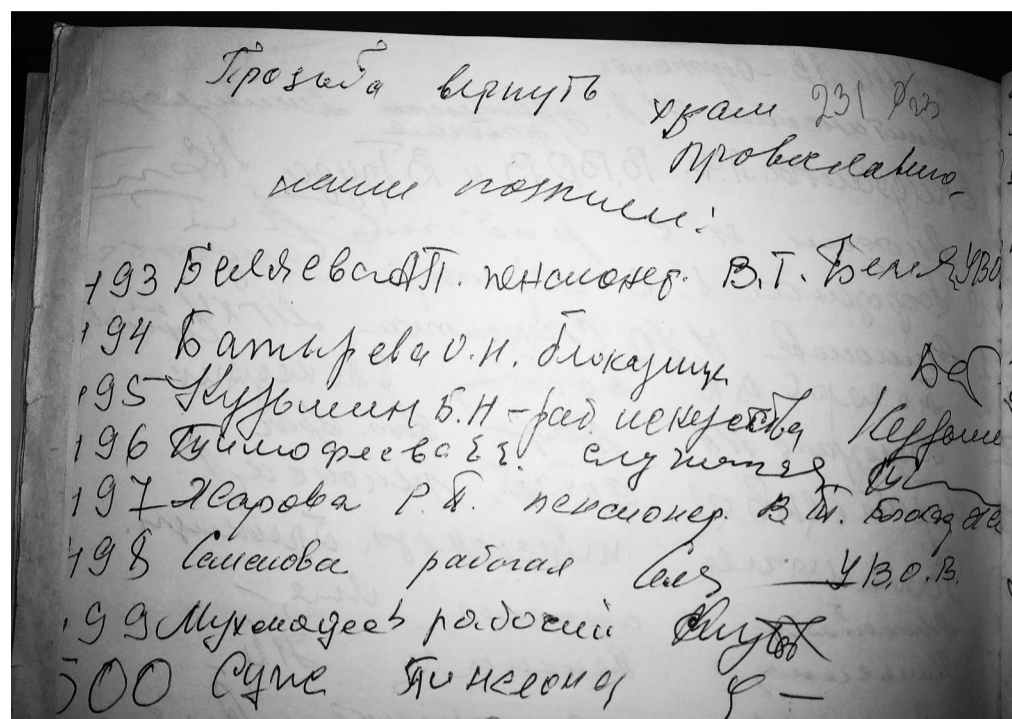 Прозьба вернуть храм 231
православно-
наши подписи:
193 Беляева А П. пенсионер. В.Т. Беля УВО
194 Батырева О.Н. блокадница Ба
195 Кузьмин Б.Н - раб. искуства Кузьми
196 Тимофеева Е Е. служащая
197 Жарова Р.П. пенсионер. В.П. Блокад
198 Семенова рабочая Сем УВ.О.В.
199 Мухамадеев рабочий
500